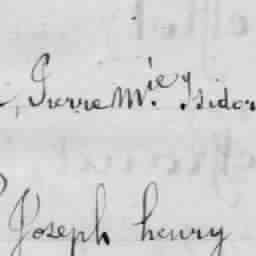 Pierre M.ie Isidor
Joseph henry